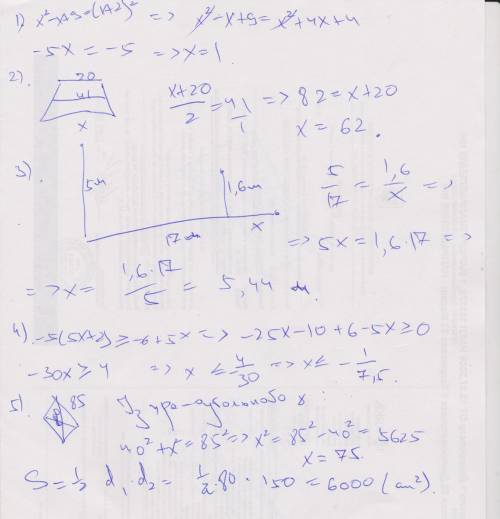 1) x²-x+9=(x+2)² => x²-x+9=x²+4x+4
-5x = -5 => x=1
2).
20
41
x
x+20/2 = 41/1 => 82=x+20
x = 62.
3).
5м
1,6м
17м
x
5/17 = 1,6/x =>
=> 5x = 1,6·17 =>
=> x = 1,6·17/5 = 5,44 м.
4) -5(5x+2) ≥ -6+5x => -25x-10+6-5x≥0
-30x ≥ 4 => x ≤ 4/-30 => x ≤ -1/7,5.
5).
85
Из прямоугольного
40²+x²=85² => x²=85²-40²=5625
x=75.
S=½ d₁·d₂ = ½·80·150=6000 (см²).